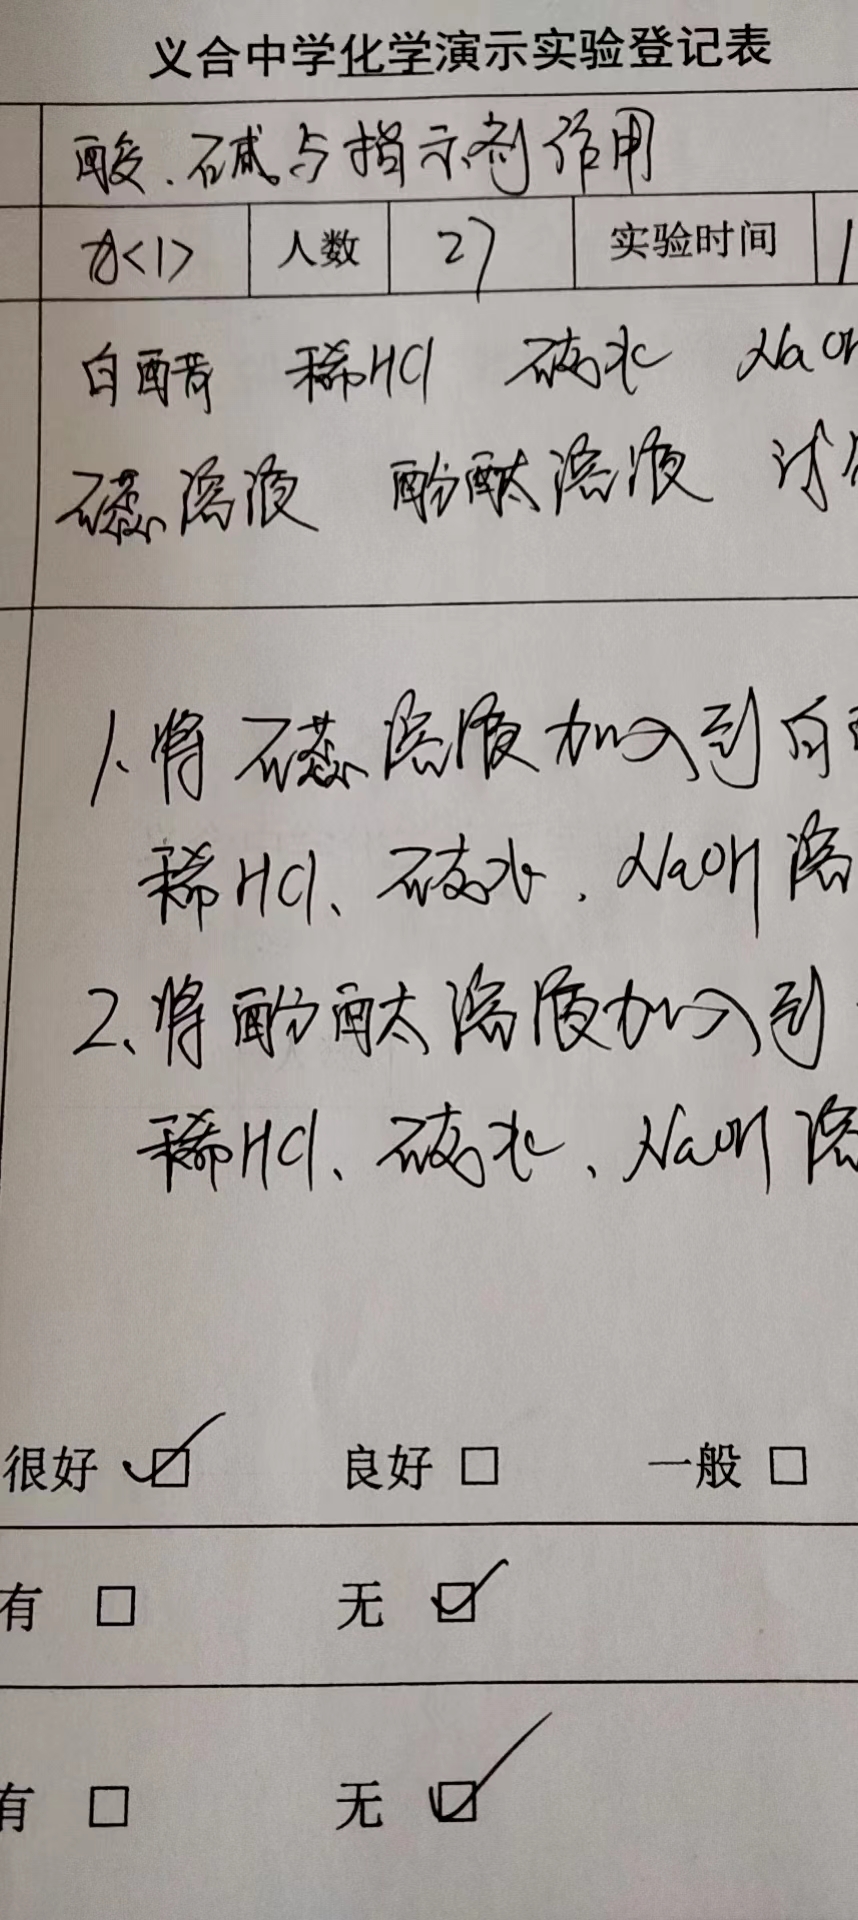 义合中学化学演示实验登记表
酸、碱与指示剂作用
九<1> 人数 27 实验时间 1
白醋 稀HCl 石灰水 NaOH
石蕊溶液 酚酞溶液 试
1、将石蕊溶液加入到白
稀HCl、石灰水、NaOH溶
2、将酚酞溶液加入到
稀HCl、石灰水、NaOH溶
很好 ☑ 良好 □ 一般 □
有 □ 无 ☑
有 □ 无 ☑